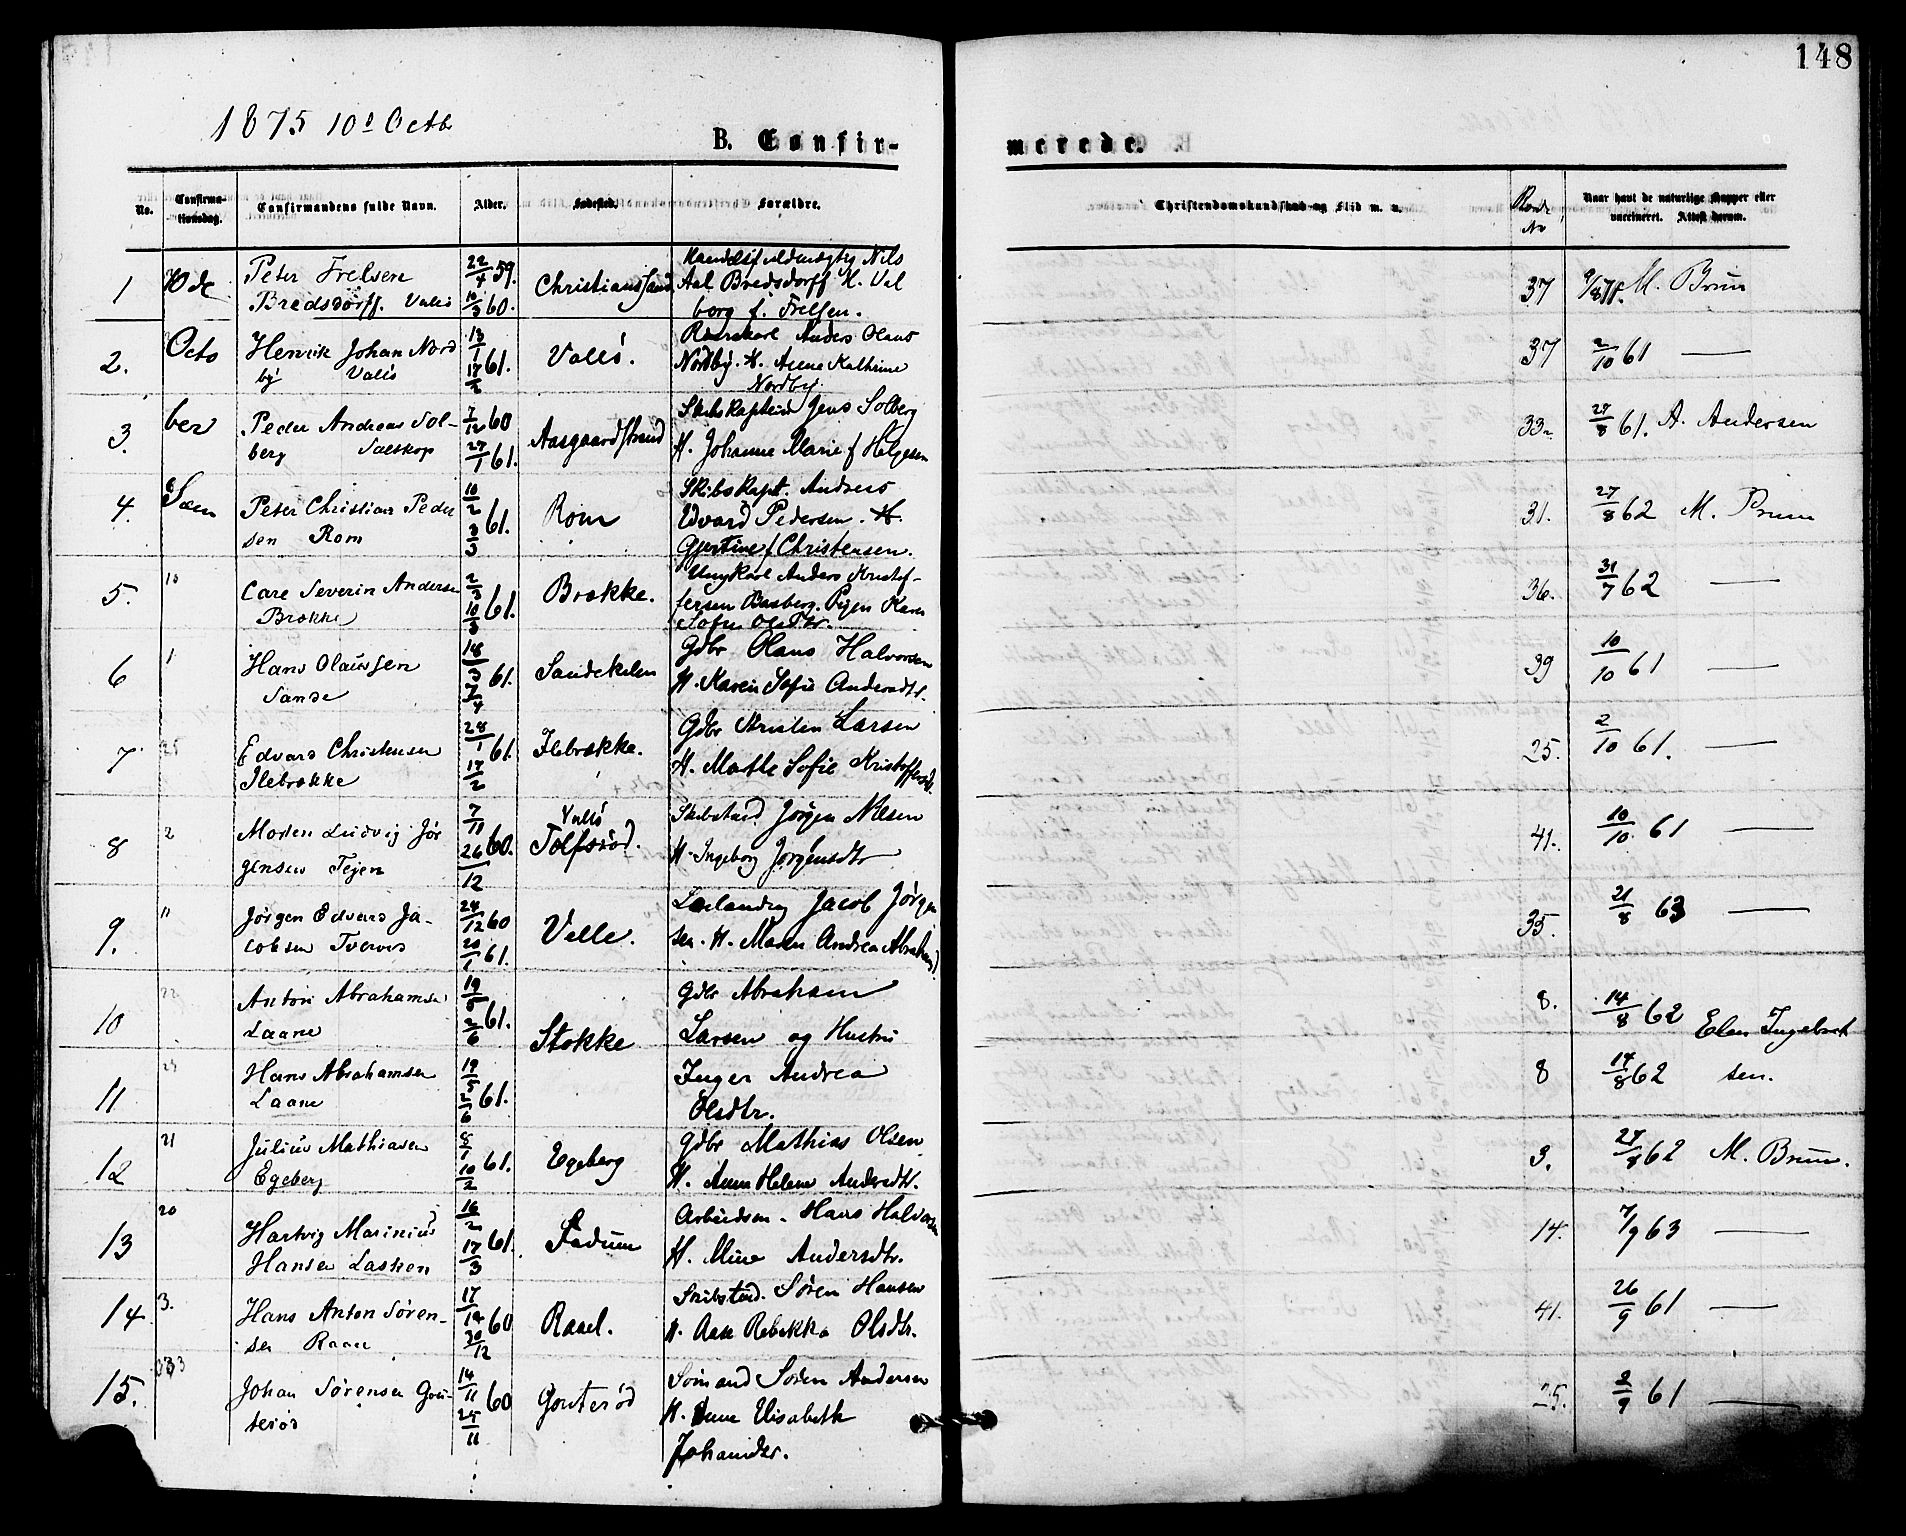 148
1875 10de Octb
B. Confir-
merede.
No.
Confirma-
tionsdag.
Confirmandens fulde Navn.
Alder.
Fødested.
Forældre.
Christendomskundskab og Flid m. m.
Naar havt de naturlige Kopper eller
vaccineret. Attest derom.
1 10de Peter Frelsen 22/4 59. Christianssand Nils
Bredsdorff. Vallö 10/3 60. Aal Bredsdorff H. Val
borg f. Frelsen.
37 M. Brun
2. Octo Henrik Johan Nord 13/1 61. Vallö. Anders Olaus
by Vallö 17/2 Nordby. H. Anne Kathrine
Nordby.
37 2/10 61 —
3. ber Peder Andreas Sol- 7/12 60 Aasgaardstrand Skibskaptein Jens Solberg
berg 27/1 61. H. Johanne Marie f Helgesen
33 27/8 61. A. Andersen
4. Sem Peter Christian Peder 10/2 61. Rom Skibskapt. Andreas
sen Rom 3/3 Edvard Pedersen. H.
Gjertine f Christensen.
31. 27/8 62 M. Brun
5. 10 Carl Severin Andersen 2/3 61. Brække. Ungkarl Anders Kristof-
Brække 10/3 fersen Basberg. Pigen Karen
Sofie Olsdtr.
36. 31/7 62 —
6 1 Hans Olaussen 18/3 61. Sandekilen Gdbr Olaus Halvorsen
Sande 7/4 H. Karen Sofie Andersdtr.
39 10/10 61 —
7 25 Edvard Christensen 28/1 61. Ilebrække. Gdbr Kristen Larsen
Ilebrække 17/2 H. Marthe Sofie Kristoffersd.
25. 2/10 61. —
8 2 Morten Ludvig Jör 7/11 60. Vallö
Tolfsröd. Jörgen Nilsen
gensen Tejen 26/12 H. Ingeborg Jörgensdtr
41. 10/10 61 —
9. 11 Jörgen Edvard Ja- 24/12 60 Velle. Jacob Jörgen
cobsen 20/1 61. sen. H. Maren Andrea Abrahamsd
35. 21/8 63 —
10 22 Anton Abrahamsen 19/5 61. Stokke Gdbr Abraham
Laane 2/6 Larsen og Hustru
8. 14/8 62 Elen Ingebret
11 23 Hans Abrahamsen 19/5 61. Inger Andrea
Laane 2/6 Olsdtr.
8 14/8 62 sen.
12 21 Julius Mathiasen 8/1 61. Egeberg Gdbr Mathias Olsen
Egeberg 10/2 H. Anna Helene Andersdtr.
3. 27/8 62 M. Brun.
13 20 Hartvig Marinius 16/2 61. Fadum Arbeidsm. Hans Halvorsen
Hansen Lasken 17/3 H. Mine Andersdtr.
14. 7/9 63 —
14 3. Hans Anton Sören- 17/12 60 Rael. Sören Hansen
sen 30/12 H. Aase Rebekka Olsdtr.
41. 26/9 61 —
15. Johan Sörensen Gou- 14/11 60 Gouteröd Sömand Sören Andersen
teröd 25/11 H. Anne Elisabeth
Johansdtr.
25. 2/9 61 —